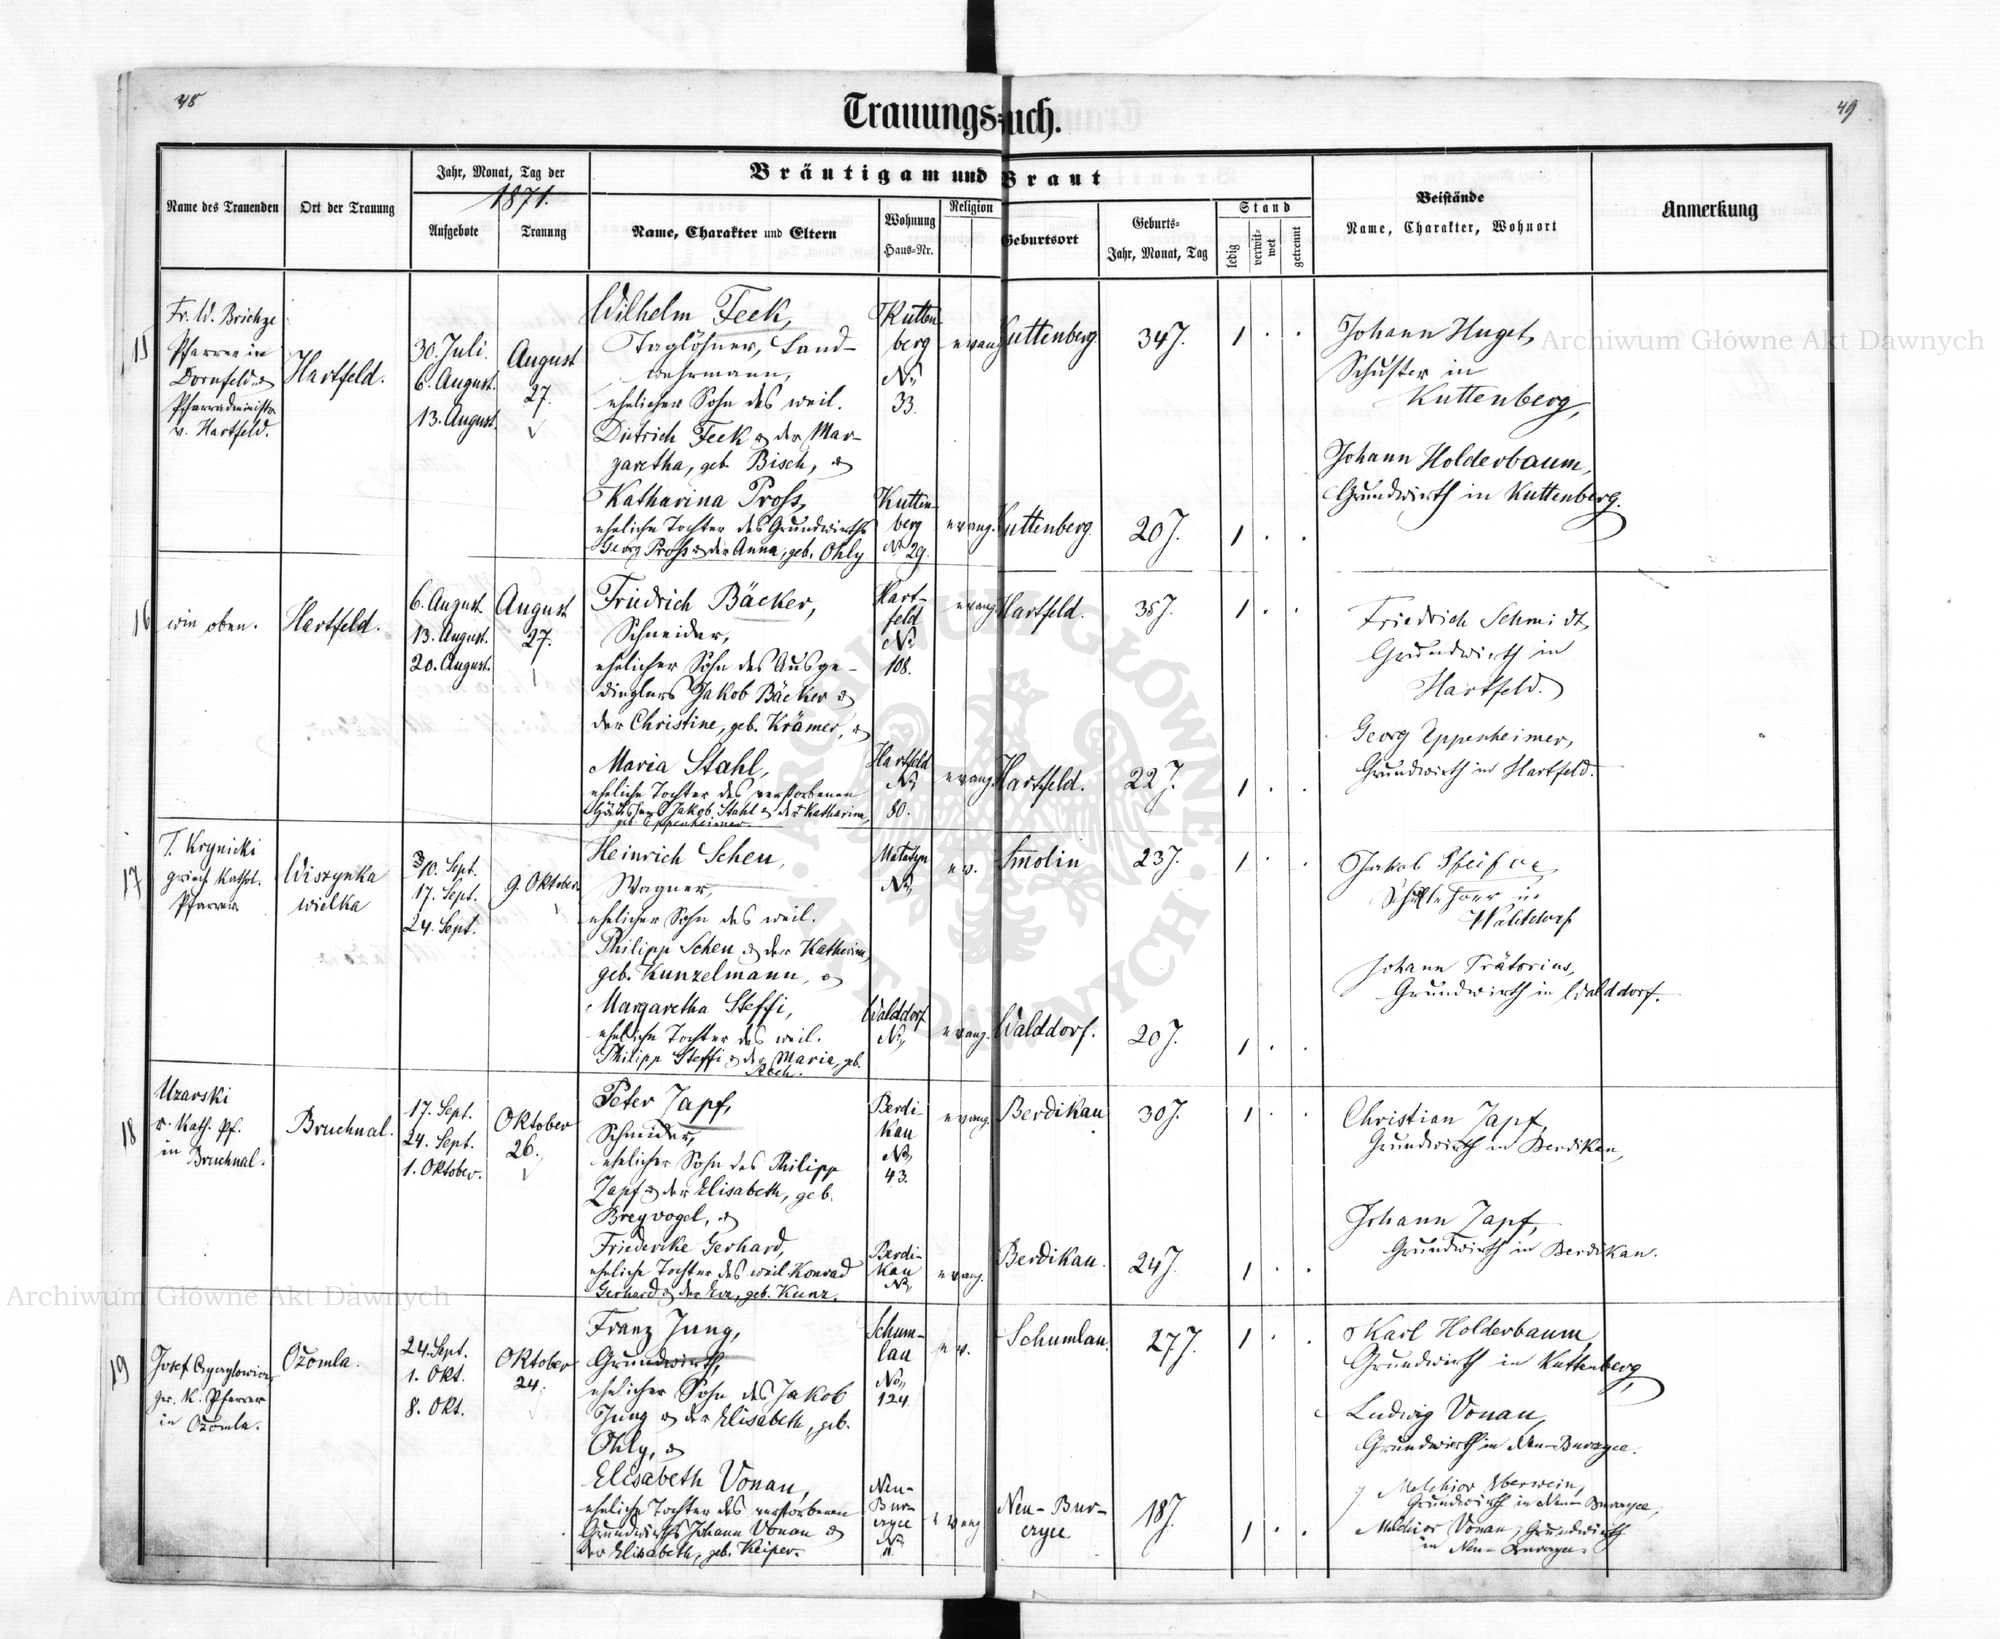 48
49
Trauungs=uch.
Name des Trauenden
Ort der Trauung
Jahr, Monat, Tag der
1871.
Aufgebote
Trauung
Bräutigam und Braut
Name, Charakter und Eltern
Wohnung
Haus=Nr.
Religion
Geburtsort
Geburts=
Jahr, Monat, Tag
Stand
ledig
verwit=
wet
getrennt
Beistände
Name, Charakter, Wohnort
Anmerkung
15
Fr. W. Brichze
Pfarrer in
Dornfeld &
Pfarradministr.
v. Hartfeld.
Hartfeld.
30. Juli.
6. August.
13. August.
August
27.
Wilhelm Feck,
Taglöhner, Land-
wehrmann,
ehelicher Sohn des weil.
Dietrich Feck & der Mar-
garetha, geb. Bisch, &
Kutten-
berg
No
33.
evang.
Kuttenberg.
34 J.
1 . .
Katharina Pross,
eheliche Tochter des Grundwirths
Georg Pross & der Anna, geb. Ohly
Kutten-
berg
No 29.
evang.
Kuttenberg
20 J.
1 . .
Johann Huget,
Schuster in
Kuttenberg,
Johann Holderbaum,
Grundwirth in Kuttenberg.
16
wie oben.
Hartfeld.
6. August.
13. August.
20. August.
August
27.
Friedrich Bäcker,
Schneider,
ehelicher Sohn des Ausge-
dinglers Jakob Bäcker &
der Christine, geb. Krämer, &
Hart-
feld
No
108.
evang.
Hartfeld.
35 J.
1 . .
Maria Stahl,
eheliche Tochter des verstorbenen
Jakob Stahl & der Katharina,
geb. Eppenheimer.
Hartfeld
No
80.
evang.
Hartfeld.
22 J.
1 . .
Friedrich Schmidt,
Grundwirth in
Hartfeld.
Georg Eppenheimer,
Grundwirth in Hartfeld.
17
T. Krynicki
griech. Kathol.
Pfarrer
Wiszynka
wielka
10. Sept.
17. Sept.
24. Sept.
9. Oktober
Heinrich Scheu,
Wagner,
ehelicher Sohn des weil.
Philipp Scheu & der Katharina,
geb. Kunzelmann, &
No
ev.
Smolin
23 J.
1 . .
Margaretha Steffi,
eheliche Tochter des weil.
Philipp Steffi & der Maria, geb.
Walddorf
No
evang.
Walddorf.
20 J.
1 . .
Jakob Pfeifer,
in
Walddorf
Johann Prätorius,
Grundwirth in Walddorf.
18
Uzarski
r. Kath. Pf.
in Bruchnal.
Bruchnal.
17. Sept.
24. Sept.
1. Oktober.
Oktober
26.
Peter Zapf,
Schneider,
ehelicher Sohn des Philipp
Zapf & der Elisabeth, geb.
Breyvogel, &
Berdi-
kau
No
43.
evang.
Berdikau
30 J.
1 . .
Friedericke Gerhard,
eheliche Tochter des weil. Konrad
Gerhard & der Eva, geb. Kunz.
Berdi-
kau
No
evang.
Berdikau.
24 J.
1 . .
Christian Zapf,
Grundwirth in Berdikau,
Johann Zapf,
Grundwirth in Berdikau.
19
Josef
gr. K. Pfarrer
in Ožomla.
Ožomla.
24. Sept.
1. Okt.
8. Okt.
Oktober
24.
Franz Jung,
Grundwirth,
ehelicher Sohn des Jakob
Jung & der Elisabeth, geb.
Ohly, &
Schum-
lau
No
124.
ev.
Schumlau.
27 J.
1 . .
Elisabeth Vonau,
eheliche Tochter des verstorbenen
Grundwirths Johann Vonau &
der Elisabeth, geb. Keiper.
Neu-
Bur-
czyce
No
11.
evang
Neu-Bur-
czyce
18 J.
1 . .
Karl Holderbaum,
Grundwirth in Kuttenberg,
Ludwig Vonau,
Grundwirth in Neu-Burczyce.
Melchior Eberwein,
Grundwirth in Neu-Burczyce,
Melchior Vonau, Grundwirth
in Neu-Burczyce.
Archiwum Główne Akt Dawnych
Archiwum Główne Akt Dawnych
ARCHIWUM GŁÓWNE AKT DAWNYCH